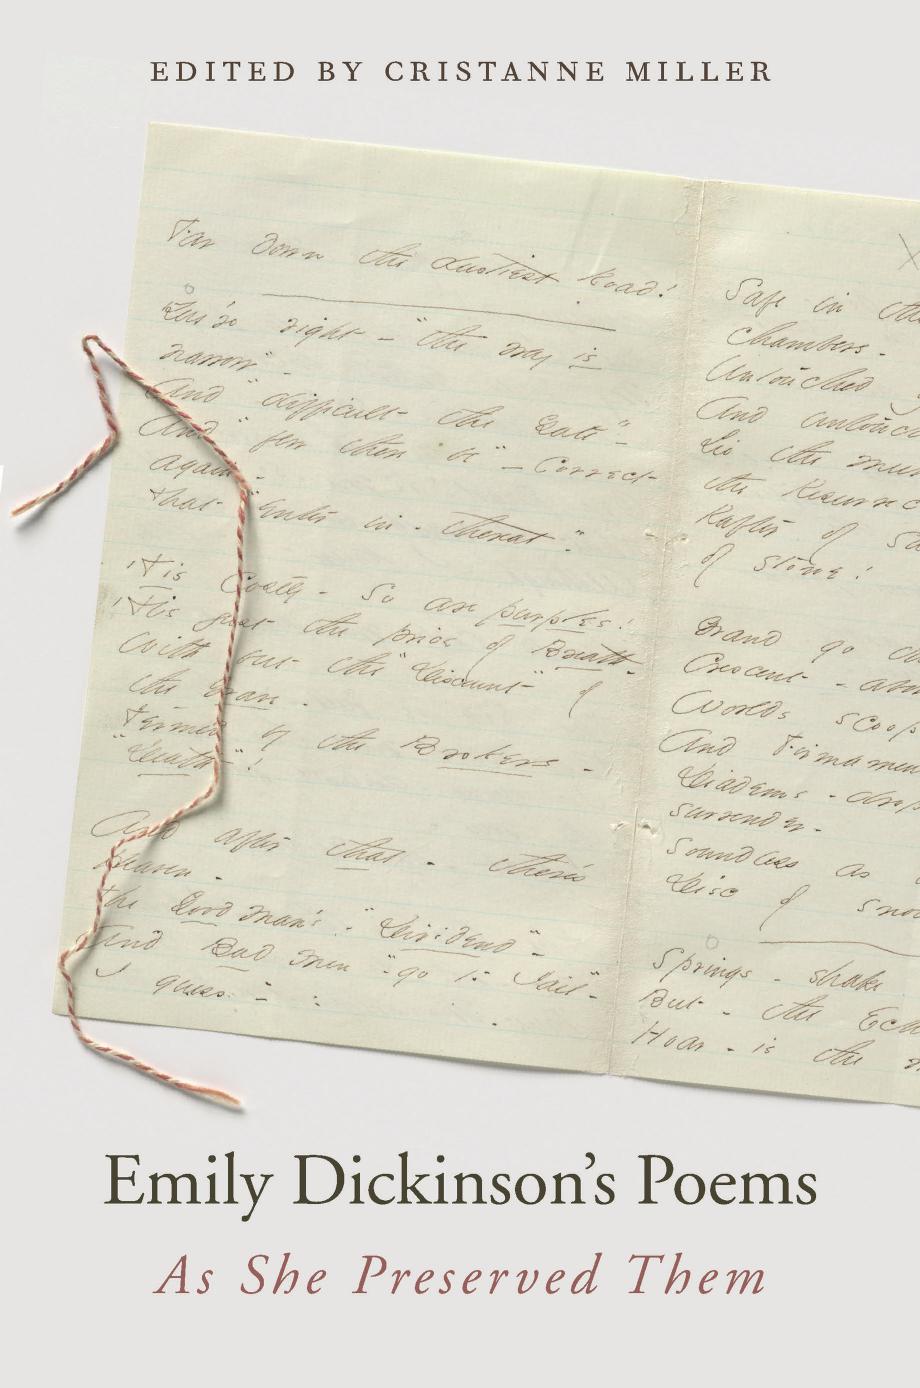 EDITED BY CRISTANNE MILLER
Far down the dustiest Road!
You're right - "the way is
narrow" -
And "difficult the Gate" -
And "few there be" - Correct
again -
That "enter in - thereat."
'Tis Costly - So are purples!
'Tis just the price of Breath -
With but the "Discount" of
the Grave -
Termed by the Brokers -
"Death"!
And after that - there's
Heaven -
The Good man's - "Dividend" -
And Bad men - "go to Jail" -
I guess -
Safe in
Chambers -
Untouched
And untouc
Lie the
the Resurrec
Rafter of Sa
of Stone!
Grand go
Crescent - abo
Worlds scoop
And Firmamen
Diadems - drop
surrender -
Soundless as
Disc of snow
Springs - shake
But - the Ech
Hoar - is the
Emily Dickinson's Poems
As She Preserved Them